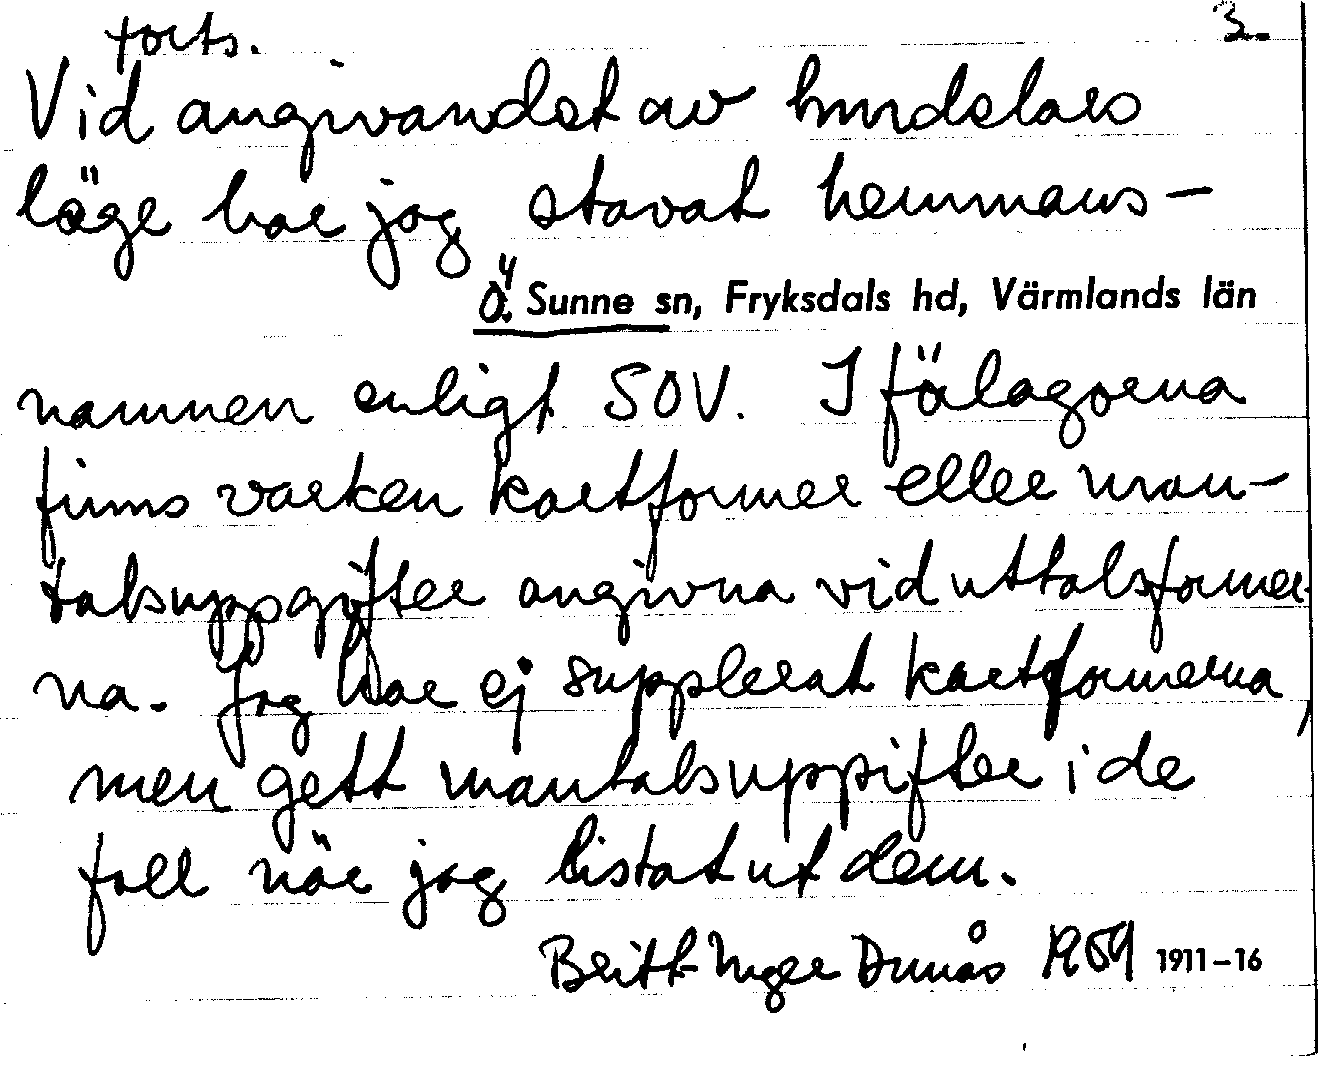 forts. 3.
Vid angivandet av hundelars
läge har jag stavat hemmans-
Ö. Sunne sn, Fryksdals hd, Värmlands län
namnen enligt SOV. I förlagorna
finns varken kartformer eller man-
talsuppgifter angivna vid uttalsformer-
na. Jag har ej supplerat kartformerna,
men gett mantalsuppifter i de
fall när jag listat ut dem.
Britt-Inger Dunås 1959 1911-16